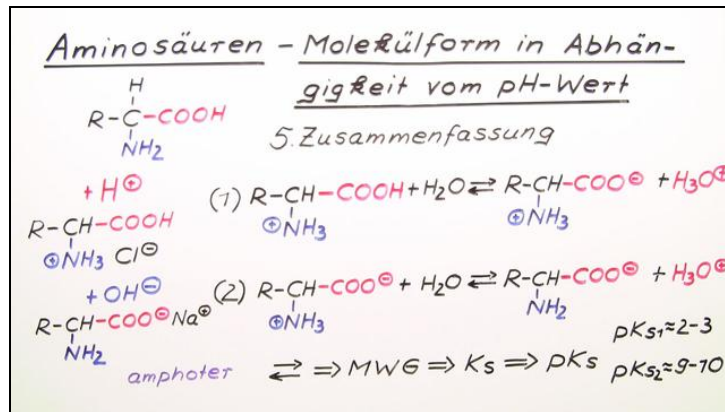 Aminosäuren – Molekülform in Abhän-
gigkeit vom pH-Wert
5. Zusammenfassung
H
R-C-COOH
NH₂
+ H⊕
R-CH-COOH
⊕NH₃ Cl⊖
+ OH⊖
R-CH-COO⊖Na⊕
NH₂
amphoter
(1) R-CH-COOH + H₂O ⇌ R-CH-COO⊖ + H₃O⊕
⊕NH₃ ⊕NH₃
(2) R-CH-COO⊖ + H₂O ⇌ R-CH-COO⊖ + H₃O⊕
⊕NH₃ NH₂
⇌ ⇒ MWG ⇒ Ks ⇒ pKs
pKs₁≈2-3
pKs₂≈9-10